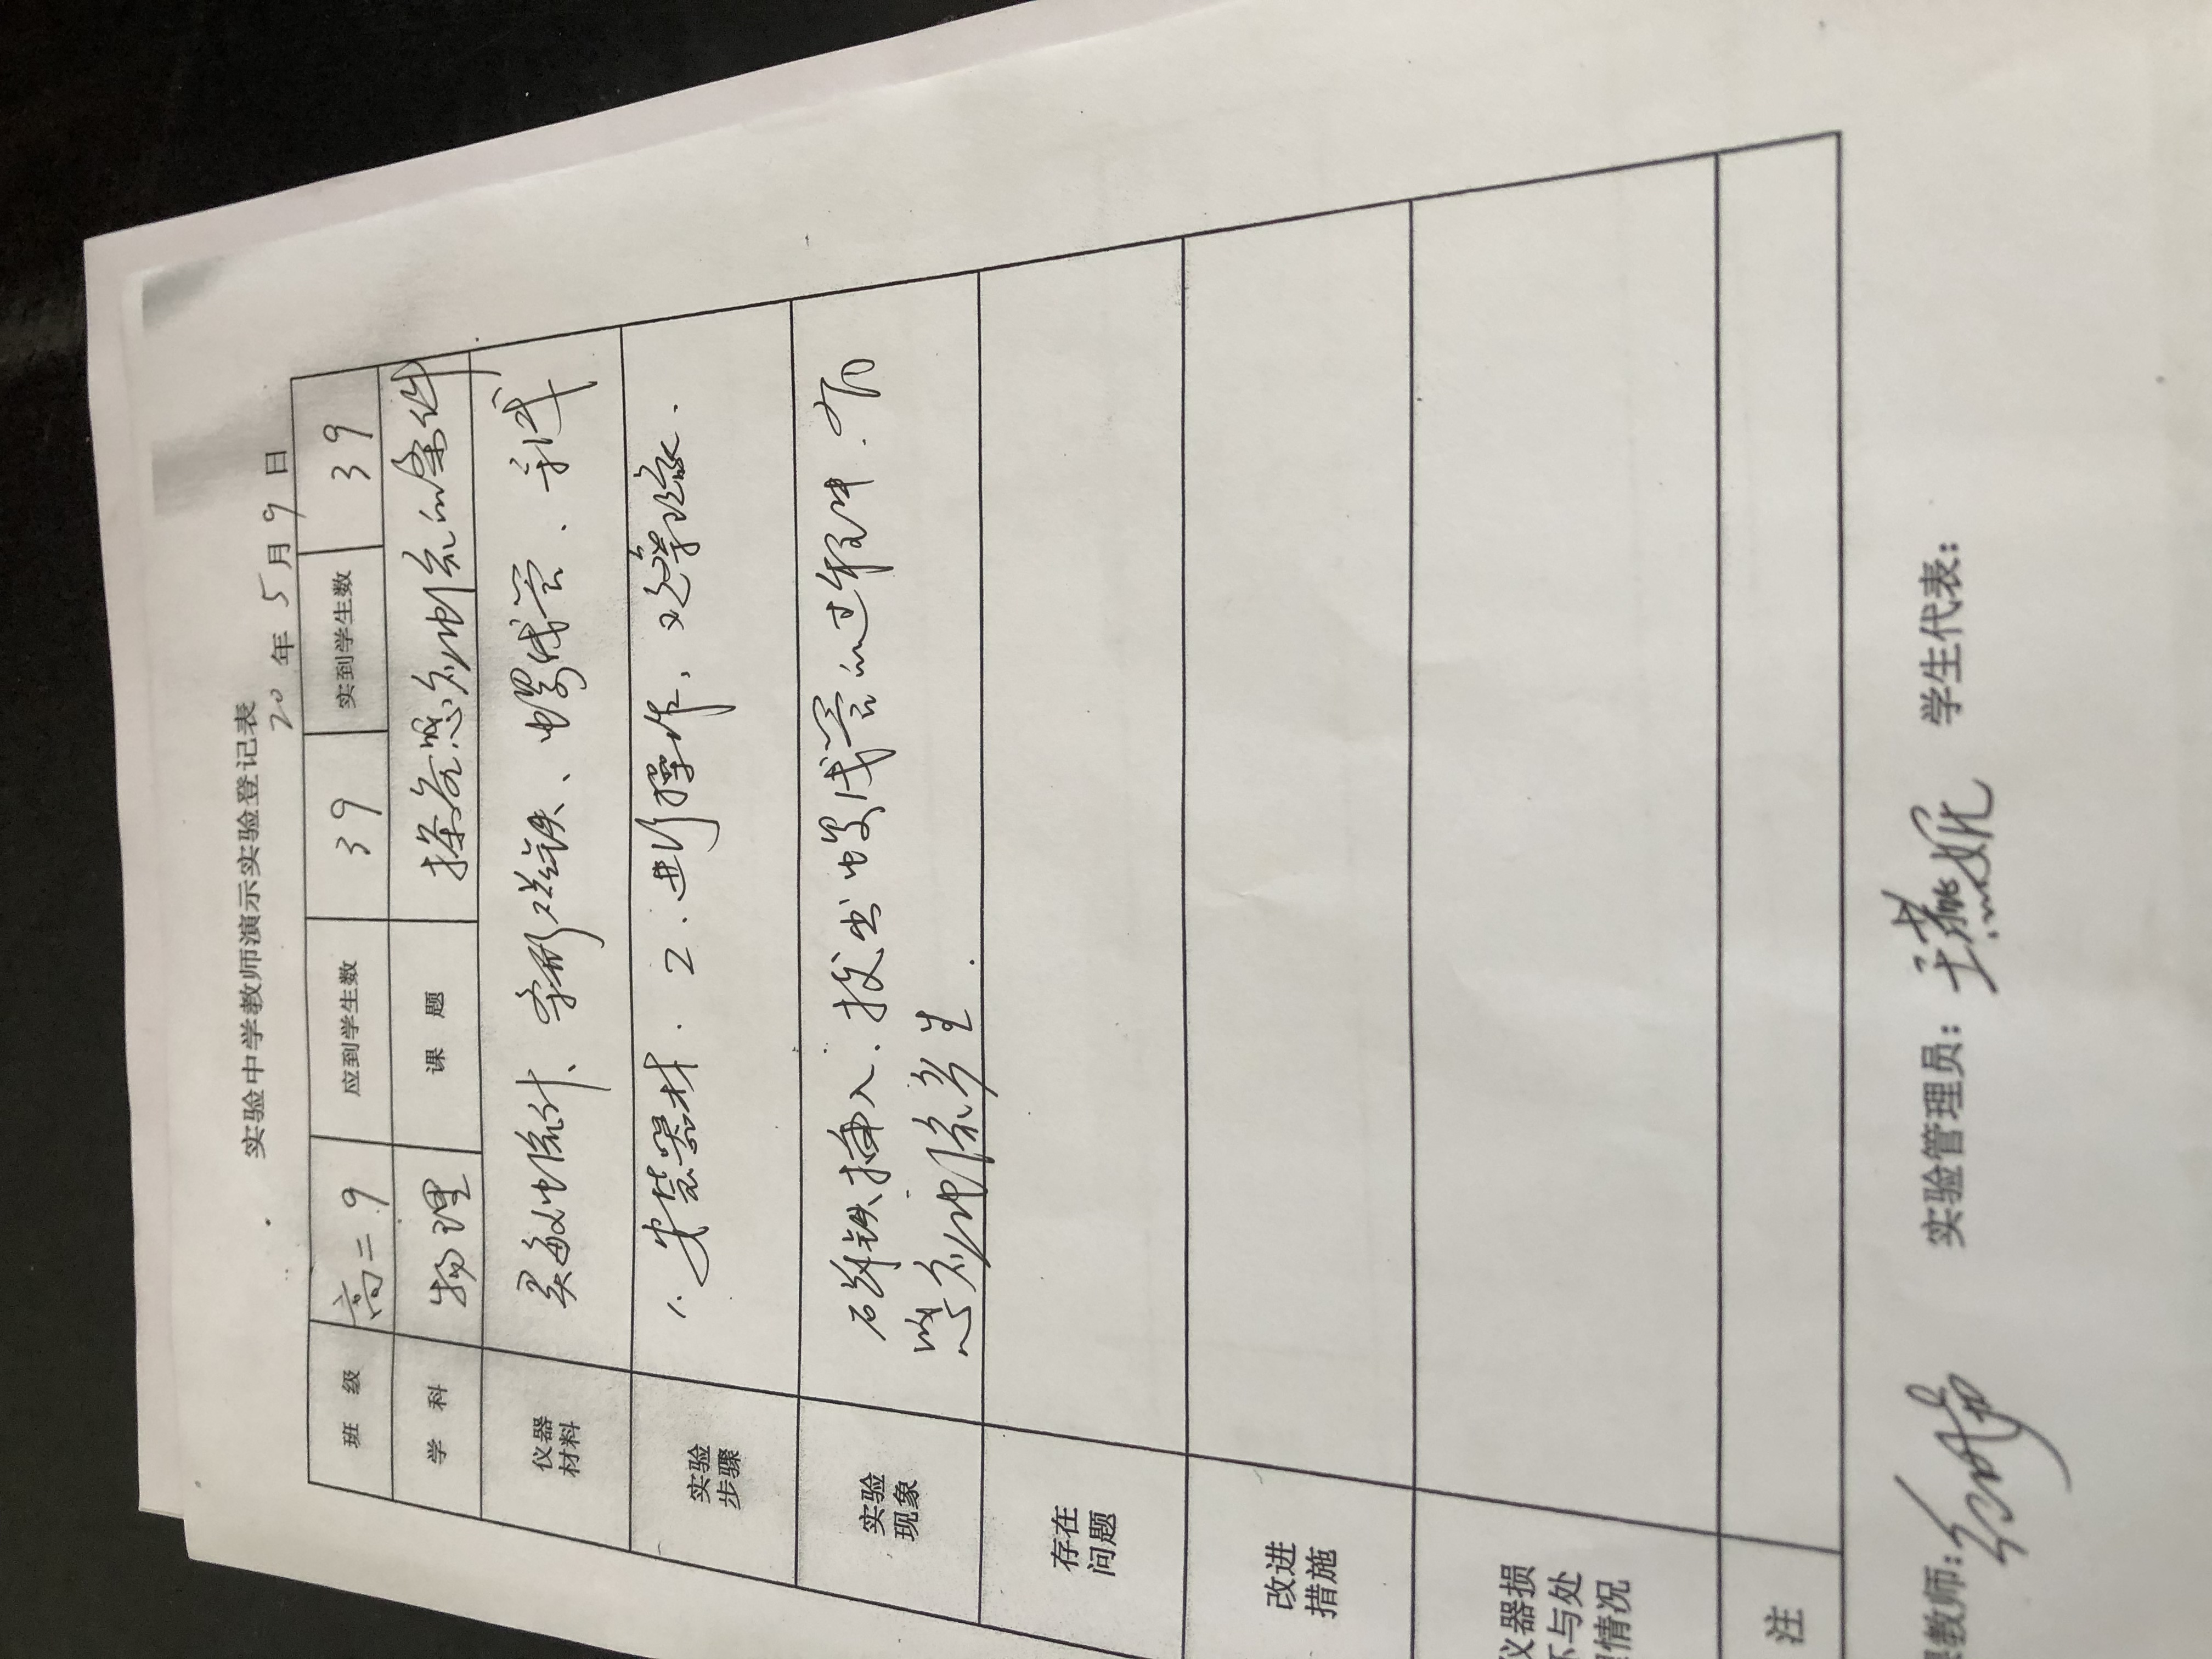 实验中学教师演示实验登记表
20 年 5 月 9 日
班 级 高二.9 应到学生数 39 实到学生数 39
学 科 物理 课 题 探究感应电流的条件
仪器
材料
灵敏电流计、条形磁铁、螺线管、导线
实验
步骤
1、安装器材. 2.进行操作, 观察现象.
实验
现象
磁铁插入.拔出螺线管的过程中.有
感应电流产生.
存在
问题
改进
措施
仪器损
坏与处
理情况
注
课教师: 实验管理员: 王燕妮 学生代表: